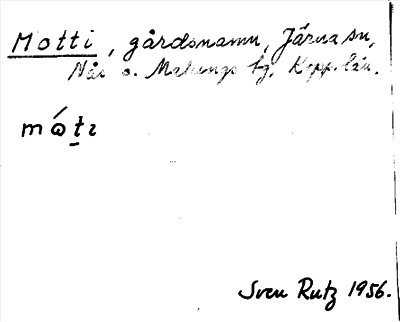 Motti, gårdsnamn, Järna sn,
Nås o. Malungs tg, Kopp. län.
mó̱tɪ
Sven Rutz 1956.